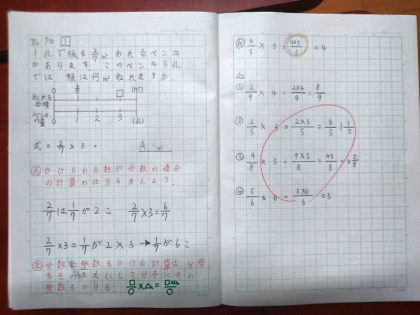 1Lで板を2/7m²ぬれるペンキ
があります。このペンキ3L
では 板は何m²ぬれますか。
0 □ (m²)
0 1 2 3 (L)
式 = 2/7 × 3 =
A m²
かけられる数が分数の場合
の計算の仕方を考えよう。
2/7は1/7が2こ 2/7×3=6/7
2/7×3=1/7が2×3→1/7が6こ
分数に整数をかける計算は、分母
をそのままにして分子にその
整数をかける。
□/○×△=□×△/○
4/5 × 5 = 4×5/5 = 4
① 2/9 × 4 = 2×4/9 = 8/9
② 2/5 × 3 = 2×3/5 = 6/5
③ 9/8 × 5 = 9×5/8 = 45/8 = 5 5/8
④ 5/6 × 6 = 5×6/6 = 5